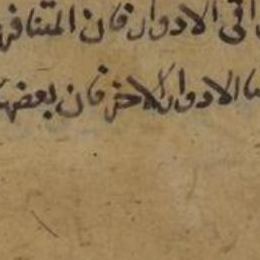 اقى الادوار فان المتنافر
الادوار الاخر فان بعضها